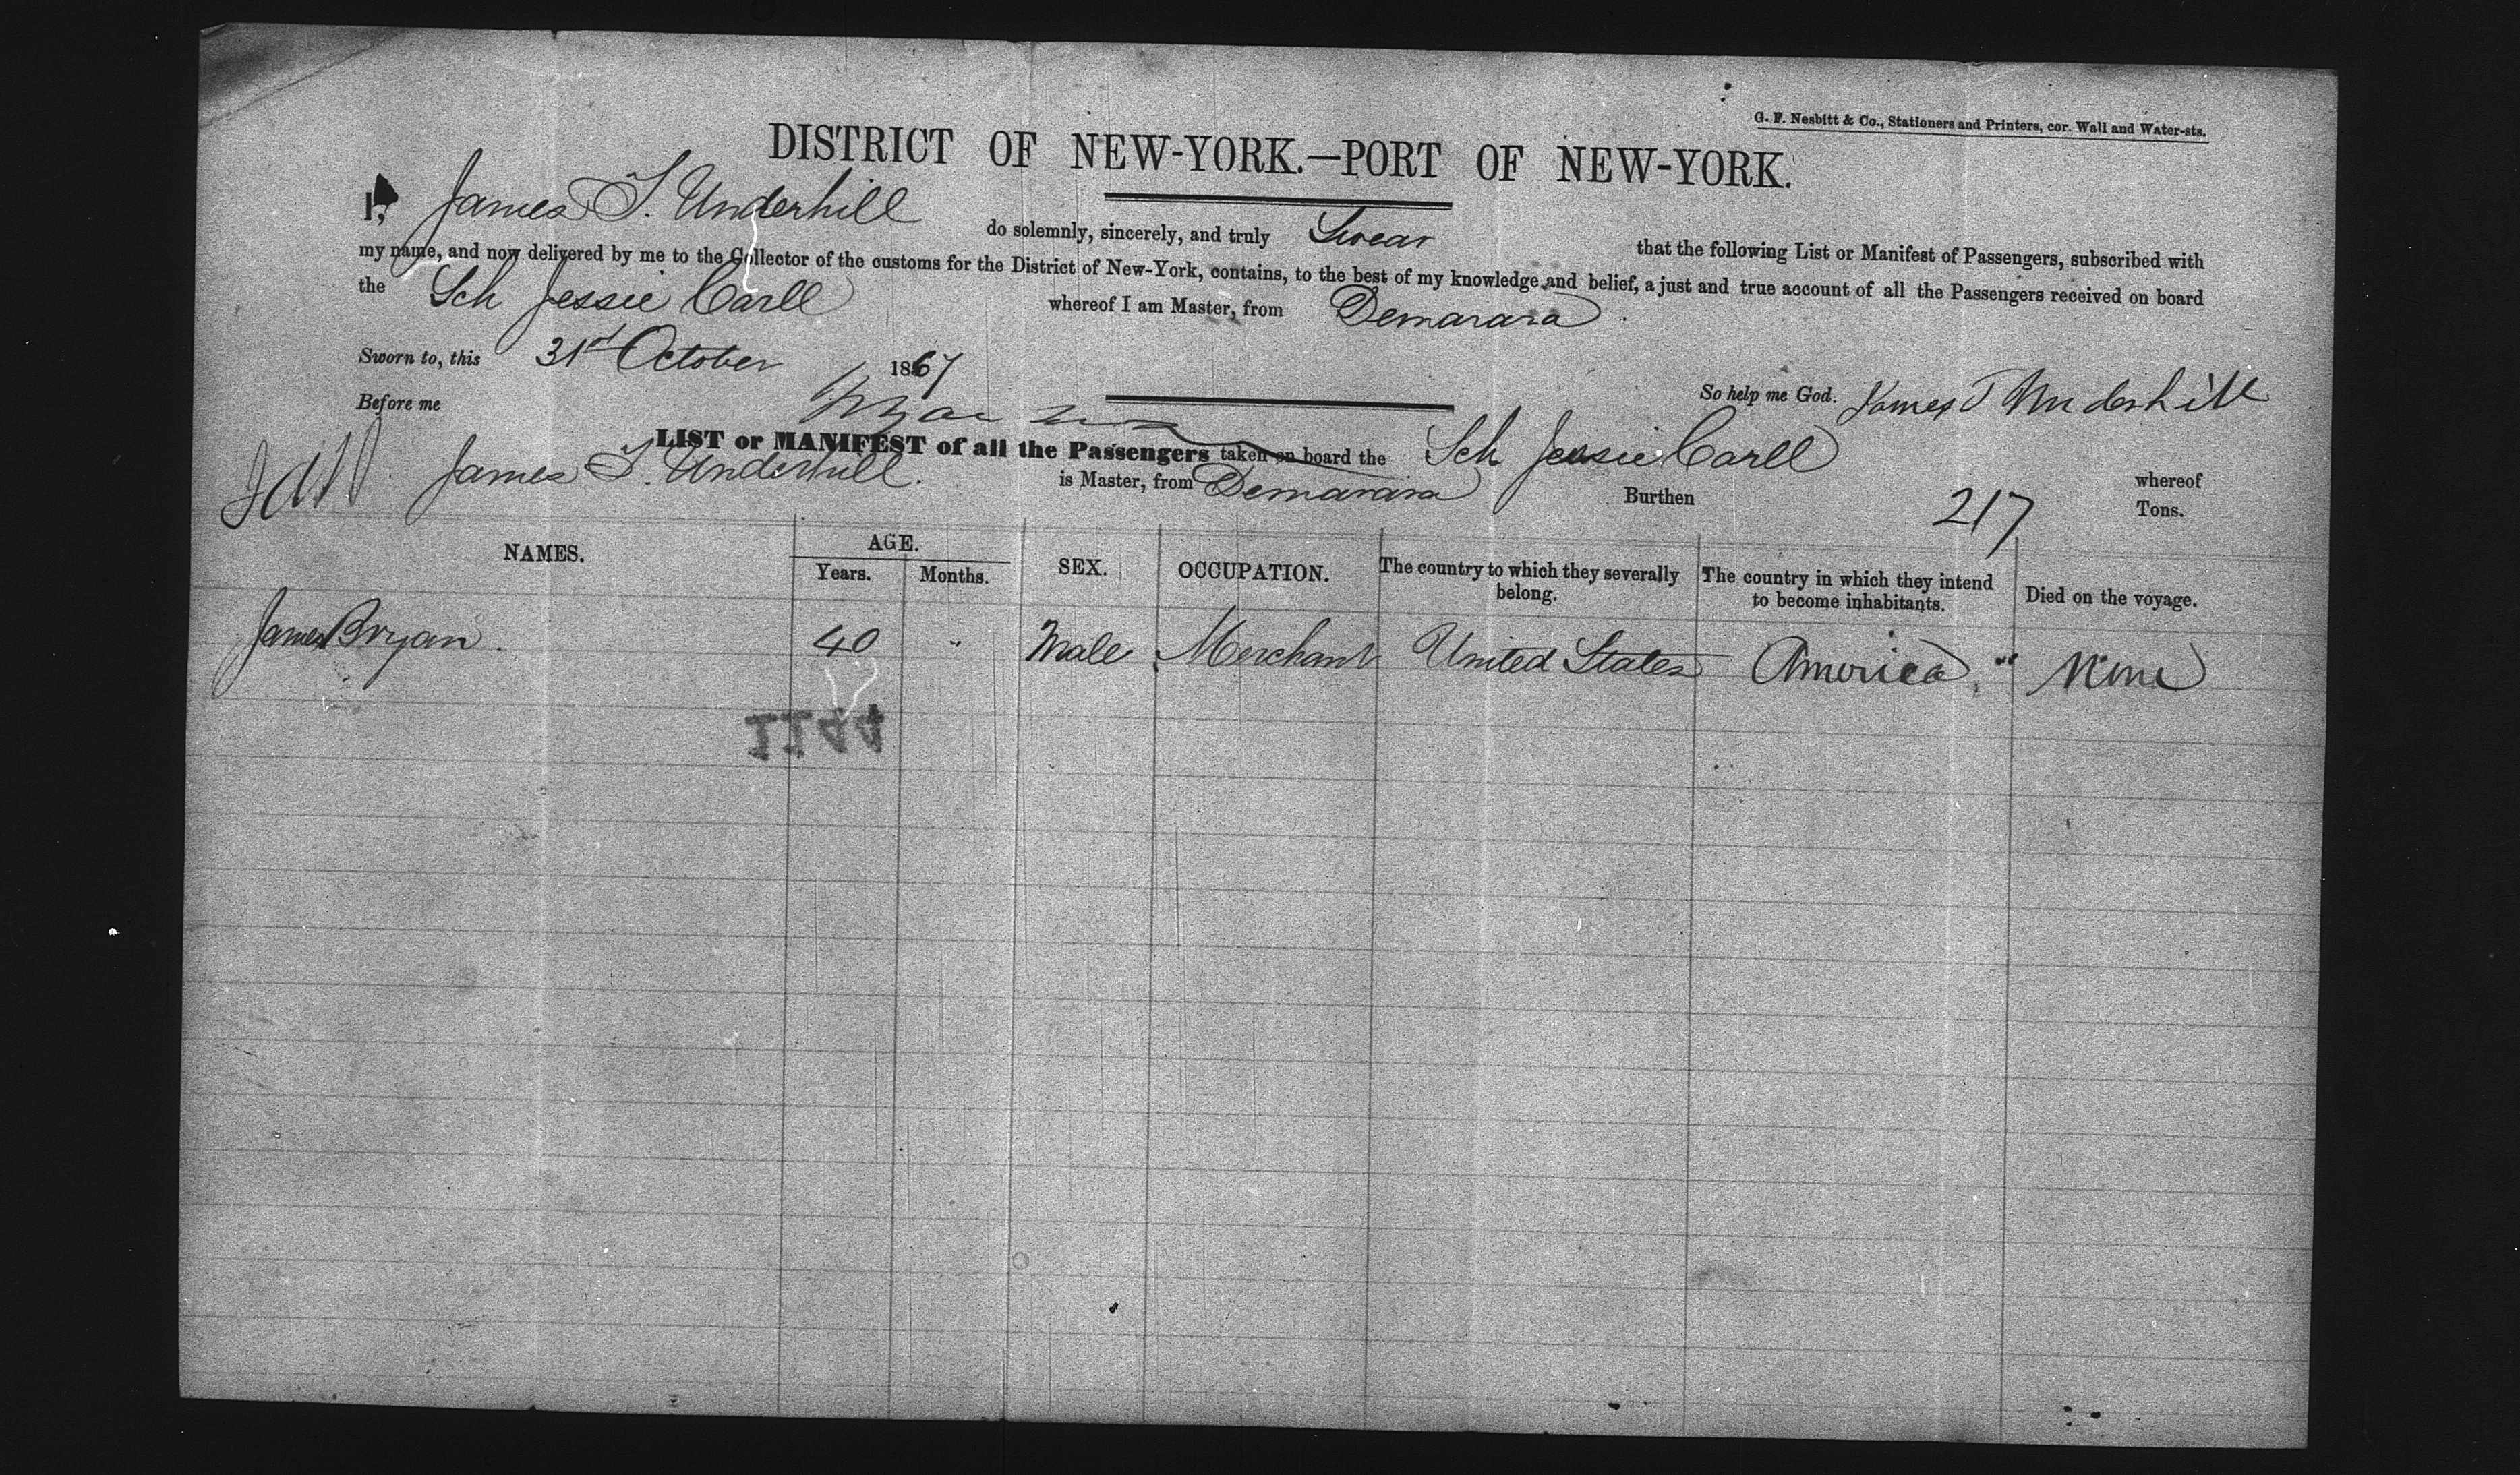 G. F. Nesbitt & Co., Stationers and Printers, cor. Wall and Water-sts.
DISTRICT OF NEW-YORK.—PORT OF NEW-YORK.
I, James T. Underhill do solemnly, sincerely, and truly Swear that the following List or Manifest of Passengers, subscribed with
my name, and now delivered by me to the Collector of the customs for the District of New-York, contains, to the best of my knowledge and belief, a just and true account of all the Passengers received on board
the Sch Jessie Carll whereof I am Master, from Demarara
Sworn to, this 31st October 1867
So help me God. James T Underhill
Before me
LIST or MANIFEST of all the Passengers taken on board the Sch Jessie Carll whereof
James T. Underhill. is Master, from Demarara Burthen 217 Tons.
NAMES. AGE. SEX. OCCUPATION. The country to which they severally belong. The country in which they intend to become inhabitants. Died on the voyage.
Years. Months.
James Bryan. 40 " Male Merchant United States America, " None
1144